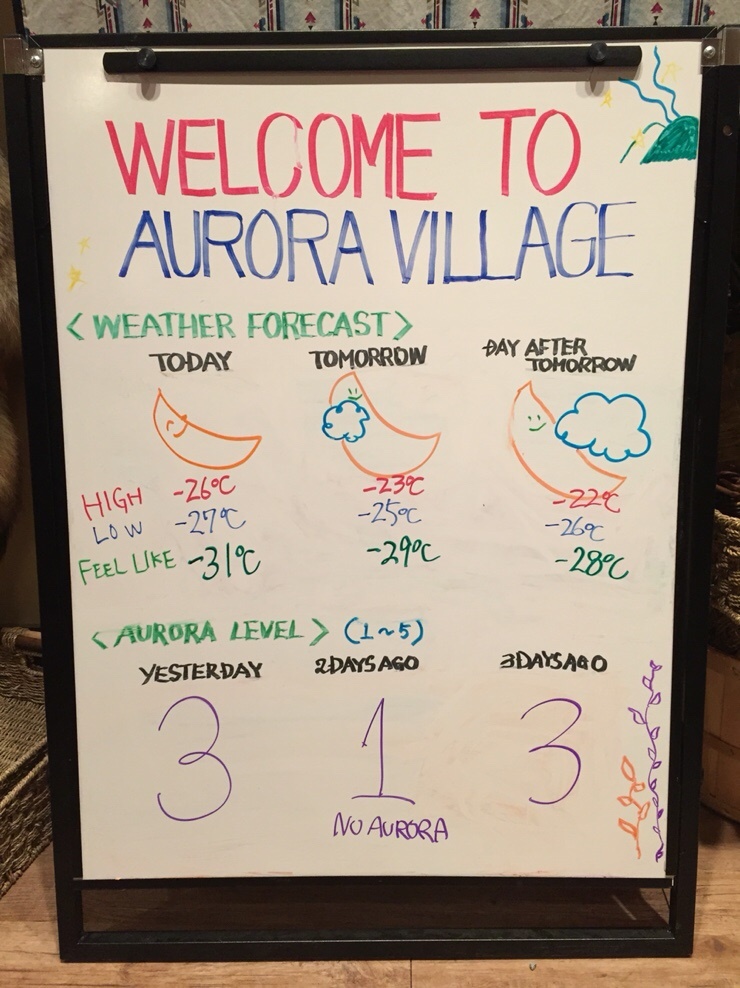 WELCOME TO
AURORA VILLAGE
< WEATHER FORECAST >
TODAY TOMORROW DAY AFTER TOMORROW
HIGH -26℃ -23℃ -22℃
LOW -27℃ -25℃ -26℃
FEEL LIKE -31℃ -29℃ -28℃
< AURORA LEVEL > (1~5)
YESTERDAY 2DAYS AGO 3DAYS AGO
3 1 3
NO AURORA